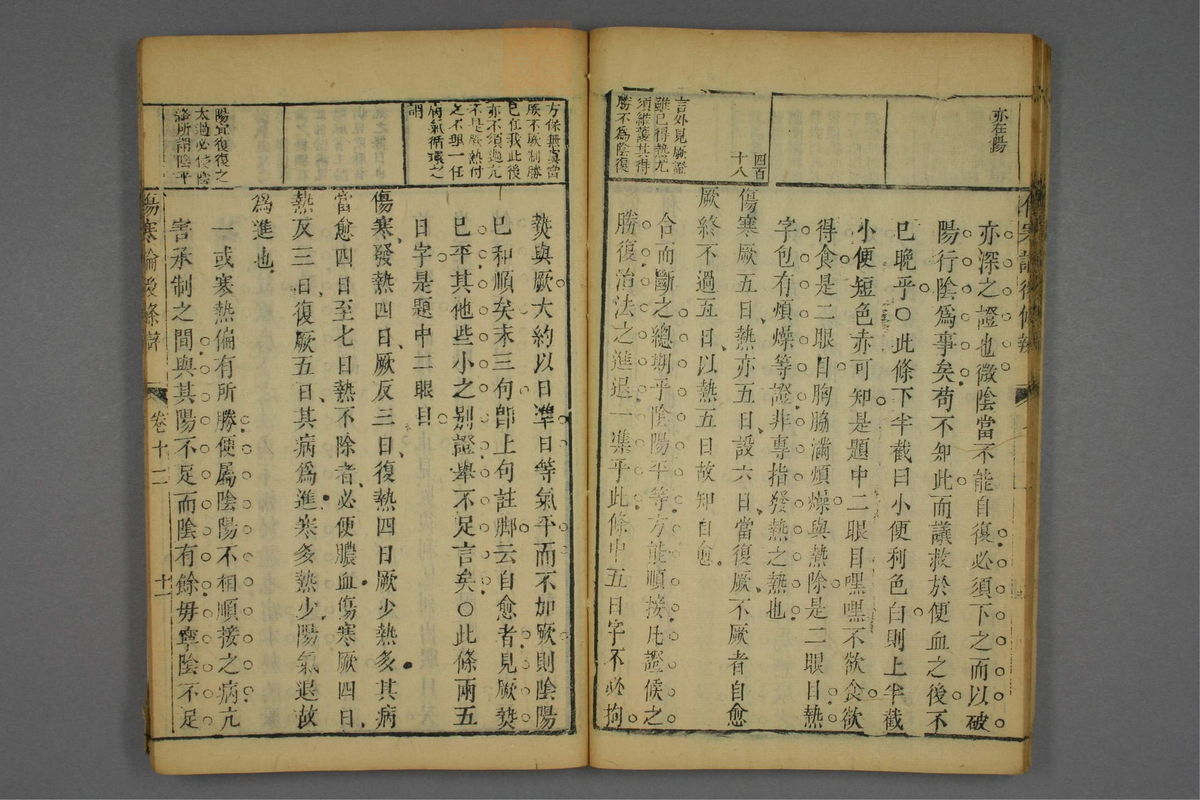 亦在陽
四百
十八
言外見厥證
雖已得熱尤
須維護其得
勝不為陰復
亦深之證也微陰當不能自復必須下之而以破
陽行陰為事矣苟不知此而議救於便血之後不
已晚乎○此條下半截曰小便利色白則上半截
小便短色赤可知是題中二眼目嘿嘿不欲食欲
得食是二眼目胸脇滿煩燥與熱除是二眼目熱
字包有煩燥等證非專指發熱之熱也
傷寒厥五日熱亦五日設六日當復厥不厥者自愈
厥終不過五日以熱五日故知自愈
合而斷之總期乎陰陽平等方能順接凡證候之
勝復治法之進退一準乎此條中五日字不必拘
方保無虞當
厥不厥制勝
已在我此後
亦不須過亢
不是厥熱付
之不理一任
病氣循環之
謂
陽宜復復之
太過必使陰
熱與厥大約以日準日等氣平而不加厥則陰陽
已和順矣末三句卽上句註脚云自愈者見厥熱
已平其他些小之別證舉不足言矣○此條兩五
日字是題中二眼目
傷寒發熱四日厥反三日復熱四日厥少熱多其病
當愈四日至七日熱不除者必便膿血傷寒厥四日
熱反三日復厥五日其病為進寒多熱少陽氣退故
為進也
一或寒熱偏有所勝便屬陰陽不相順接之病亢
害承制之間與其陽不足而陰有餘毋寧陰不足
傷寒論後條辯
卷十二
十一